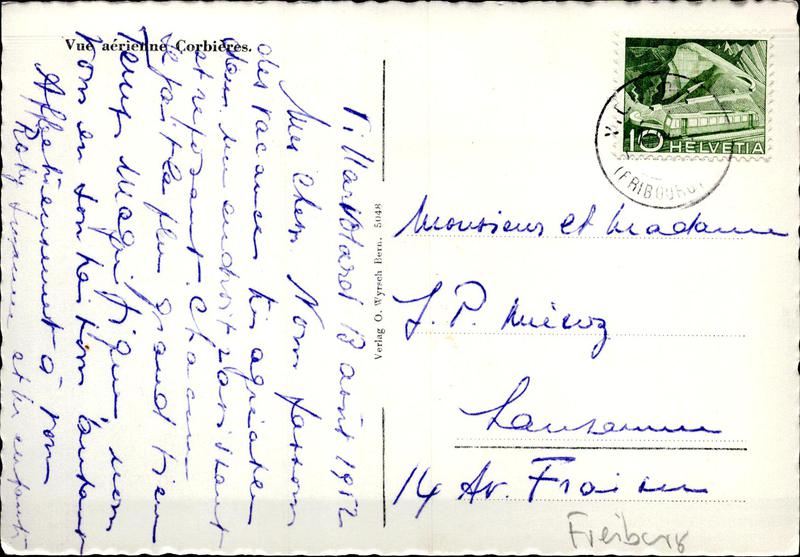 Vue aérienne Corbières.
Villars s/Mont 13 août 1952
Mes chers. Nous passons
des vacances très agréables
dans un endroit ravissant
et reposant. Chacun
se fait le plus grand bien
Temps magnifique nous
vous en souhaitons autant
Affectueusement à vous
Roby Suzanne et les enfants
Verlag O. Wyrsch Bern. 5048
10 HELVETIA
(FRIBOURG)
Monsieur et Madame
J. P.
Lausanne
14 Av.
Freiburg